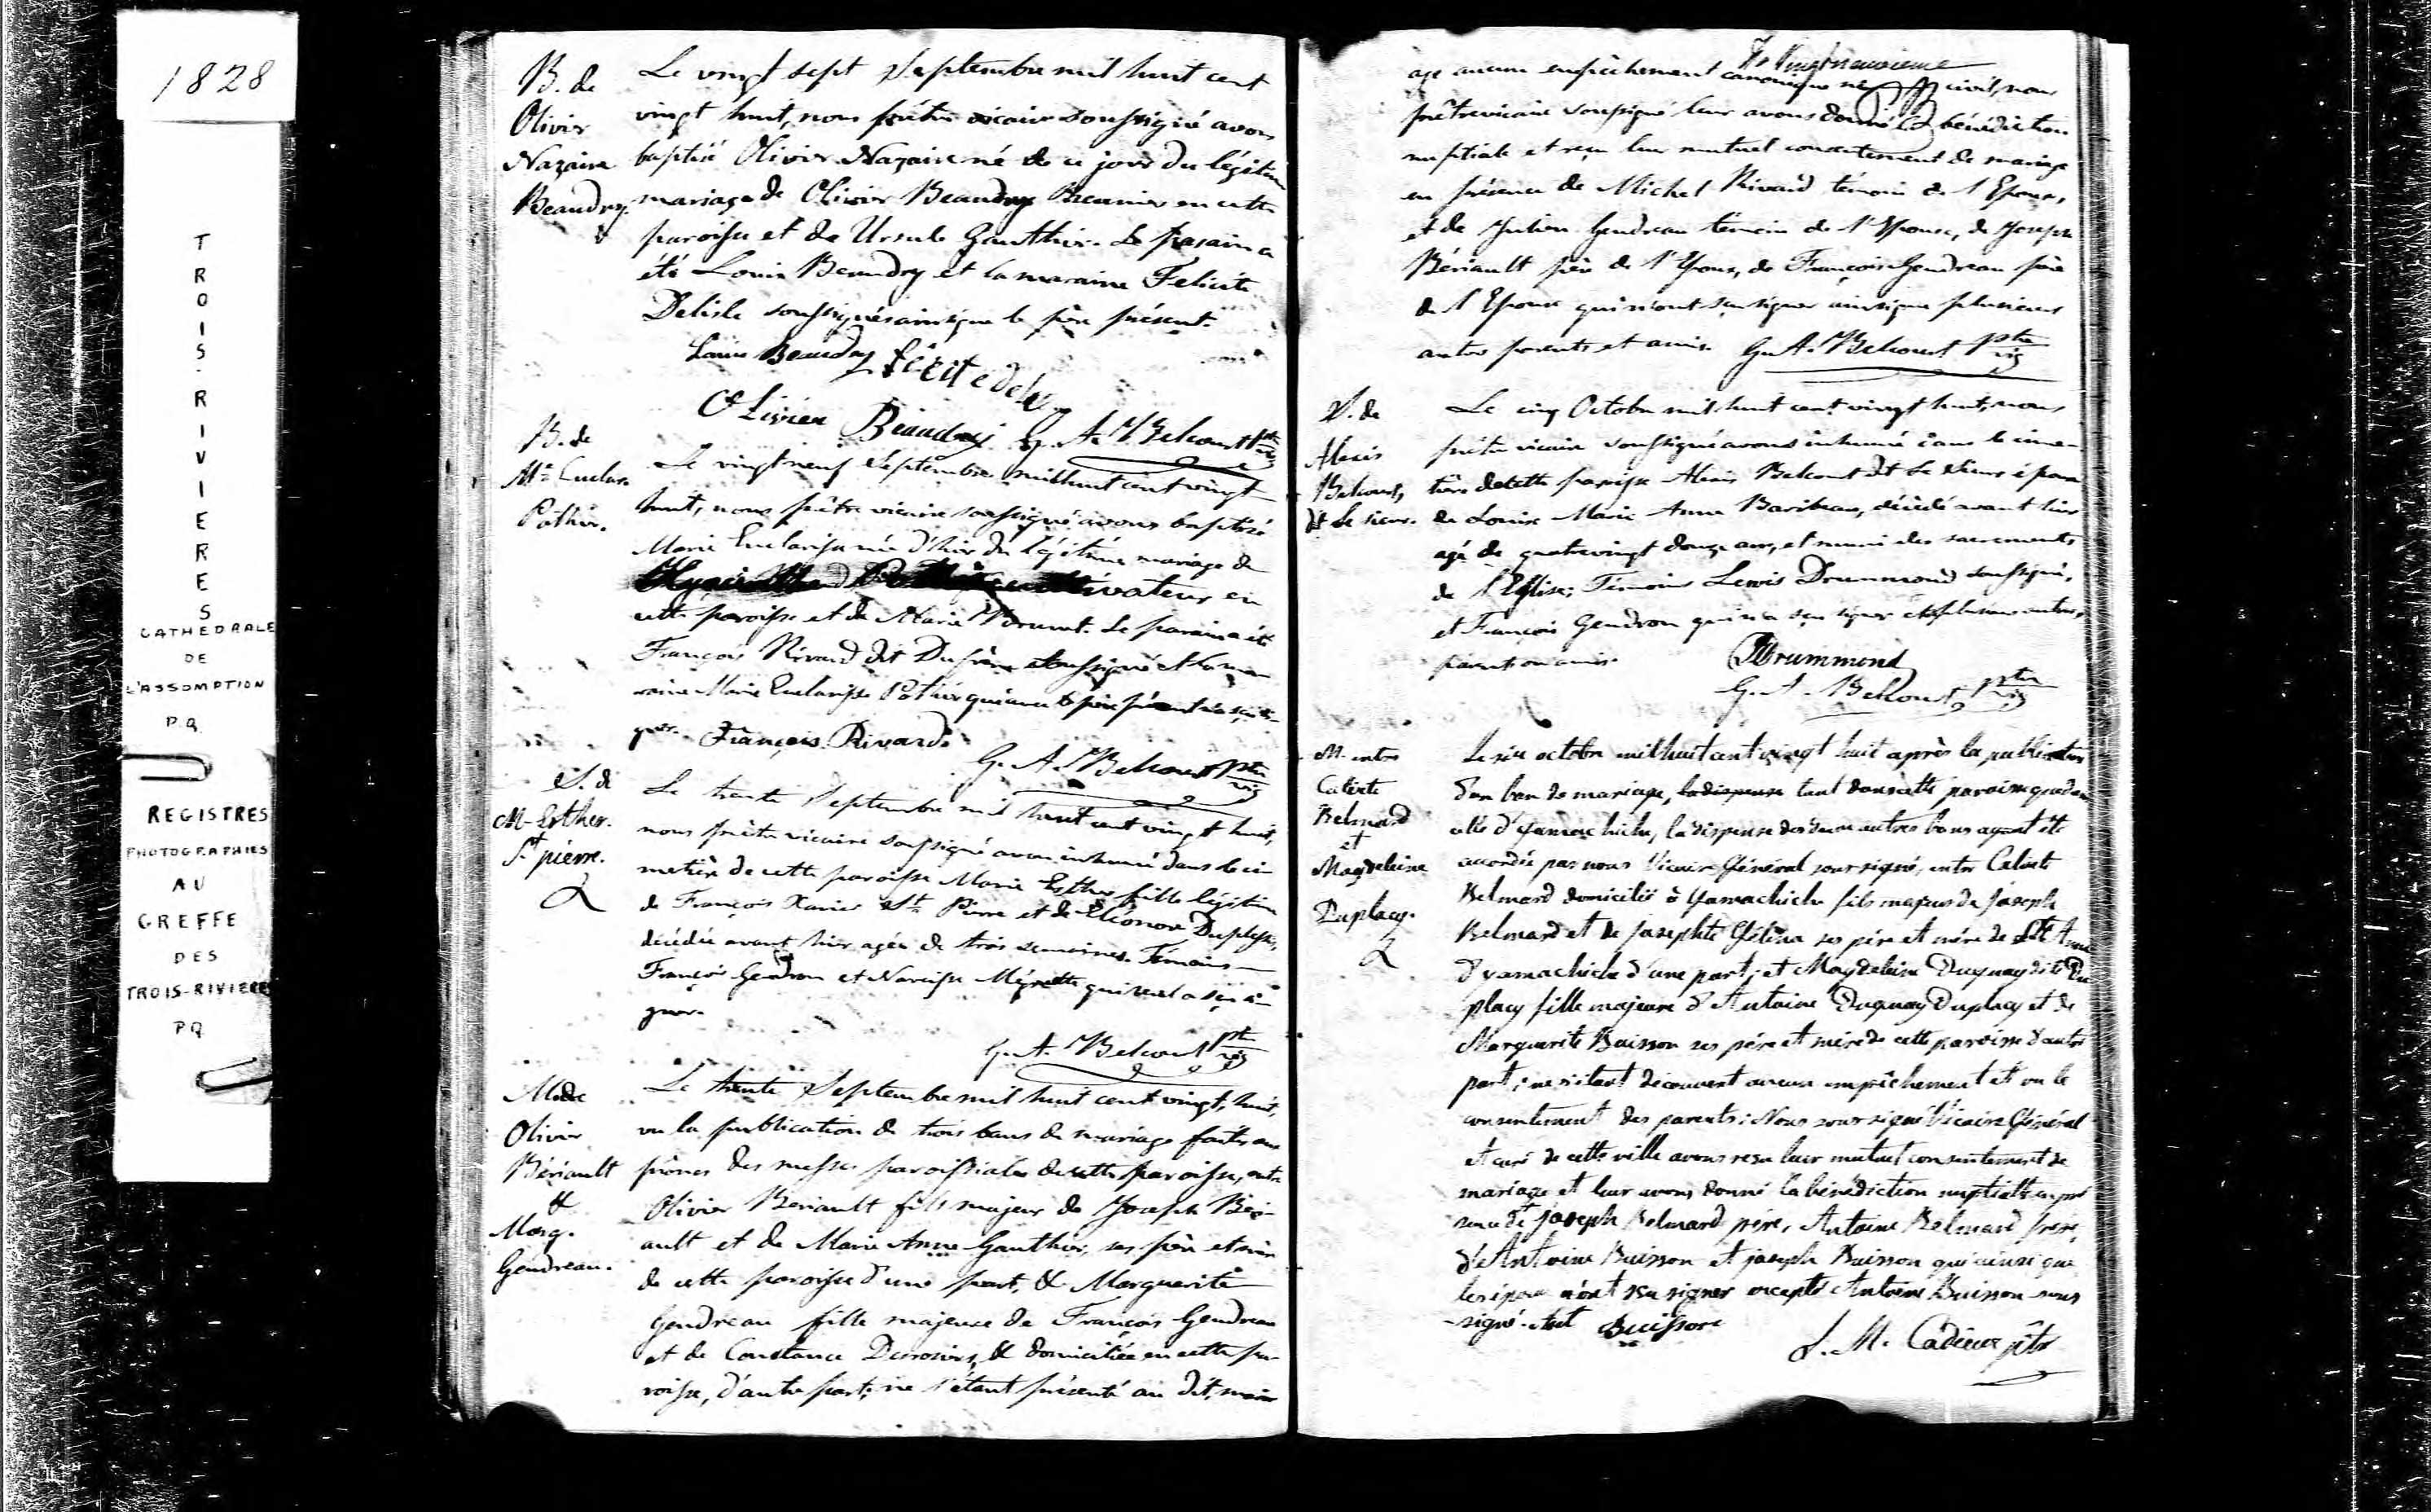 1828
TROIS-RIVIERES
CATHEDRALE
DE
L'ASSOMPTION
P.Q.
REGISTRES
PHOTOGRAPHIES
AU
GREFFE
DES
TROIS-RIVIERES
PQ
B. de
Olivier
Nazaire
Beaudry.
Le vingt sept Septembre mil huit cent
vingt huit, nous prêtre vicaire soussigné avons
baptisé Olivier Nazaire né de ce jour du légitime
mariage de Olivier Beaudry en cette
paroisse et de Ursule Gauthier. Le parain a
été Louis Beaudry et la maraine Felicité
Delisle soussignés ainsi que le père présent.
Louis Beaudry
Olivier Beaudry G. A. Belcourt ptre vic
B. de
Pothier.
Le vingt neuf Septembre mil huit cent vingt
huit, nous prêtre vicaire soussigné avons baptisé
Marie née d'hier du légitime mariage de
cultivateur en
cette paroisse et de Marie. Le parain a été
François Rivard dit Dufrêne soussigné et la ma-
raine Marie Pothier qui avec le père présent n'a scu si-
gner. François Rivard
G. A. Belcourt ptre vic
S. de
M. Esther.
St pierre.
Le trente Septembre mil huit cent vingt huit,
nous prêtre vicaire soussigné avons inhumé dans le ci-
metière de cette paroisse Marie Esther fille légitime
de François Xavier St. Pierre et de Eléonore Duplessis,
décédée avant hier, agée de trois semaines. Témoins
François Gendron et Narcisse qui n'ont scu si-
gner.
G. A. Belcourt ptre vic
M. de
Olivier
Bériault
&
Marg.
Gendreau.
Le trente Septembre mil huit cent vingt, huit,
vu la publication de trois bans de mariage faite aux
prônes des messes paroissiales de cette paroisse, entre
Olivier Beriault fils majeur de Joseph Béri-
ault et de Marie Anne Gauthier, ses père et mère
de cette paroisse d'une part, & Marguerite
Gendreau fille majeure de François Gendreau
et de Constance Desrosiers, & domiciliée en cette pa-
roisse, d'autre part; ne s'étant présenté au dit mari-
Vingtneuvieme
age aucun empêchement canonique ni civil, nous
prêtre vicaire soussigné leur avons donné la bénédiction
nuptiale et reçu leur mutuel consentement de mariage
en présence de Michel Rivard témoin de l'Epoux,
et de Julien Gendreau témoin de l'Epouse, de Joseph
Bériault père de l'Epoux, de François Gendreau père
de l'Epouse qui n'ont scu signer ainsi que plusieurs
autres parents et amis. G. A. Belcourt ptre vic
S. de
Alexis
Belcourt,
dt Le sieur.
Le cinq Octobre mil huit cent vingt huit, nous
prêtre vicaire soussigné avons inhumé dans le cime-
tière de cette paroisse Alexis Belcourt dit Le Sieur époux
de Louise Marie Anne Baribeau, décédé avant hier
agé de quatrevingt douze ans, et muni des sacrements
de l'Eglise; Témoins Lewis Drummond soussigné,
et François Gendron qui n'a scu signer et plusieurs autres,
parents ou amis. Drummond
G. A. Belcourt ptre vic
M. entre
Calixte
Belmard
et
Magdeleine
Duplacy.
Le six octobre mil huit cent vingt huit après la publication
d'un ban de mariage, la dispense tant dans cette paroisse que dans
celle d'Yamachiche, la dispense des deux autres bans ayant été
accordée par nous Vicaire Général soussigné, entre Calixte
Belmard domicilié à Yamachiche fils majeur de Joseph
Belmard et de Josephte Gélina ses père et mère de Ste Anne
d'yamachiche d'une part; et Magdeleine Duguay dite Du
placy fille majeure d'Antoine Duguay Duplacy et de
Marguerite Buisson ses père et mère de cette paroisse d'autre
part; ne s'étant découvert aucun empêchement et vu le
consentement des parents: Nous soussigné Vicaire Général
et curé de cette ville avons reçu leur mutuel consentement de
mariage et leur avons donné la bénédiction nuptiale en pré
sence de Joseph Belmard père, Antoine Belmard frère,
d'Antoine Buisson et joseph Buisson qui ainsi que
les époux n'ont scu signer excepté Antoine Buisson sous
-signé. Ant Buisson
L. M. Cadieux ptr